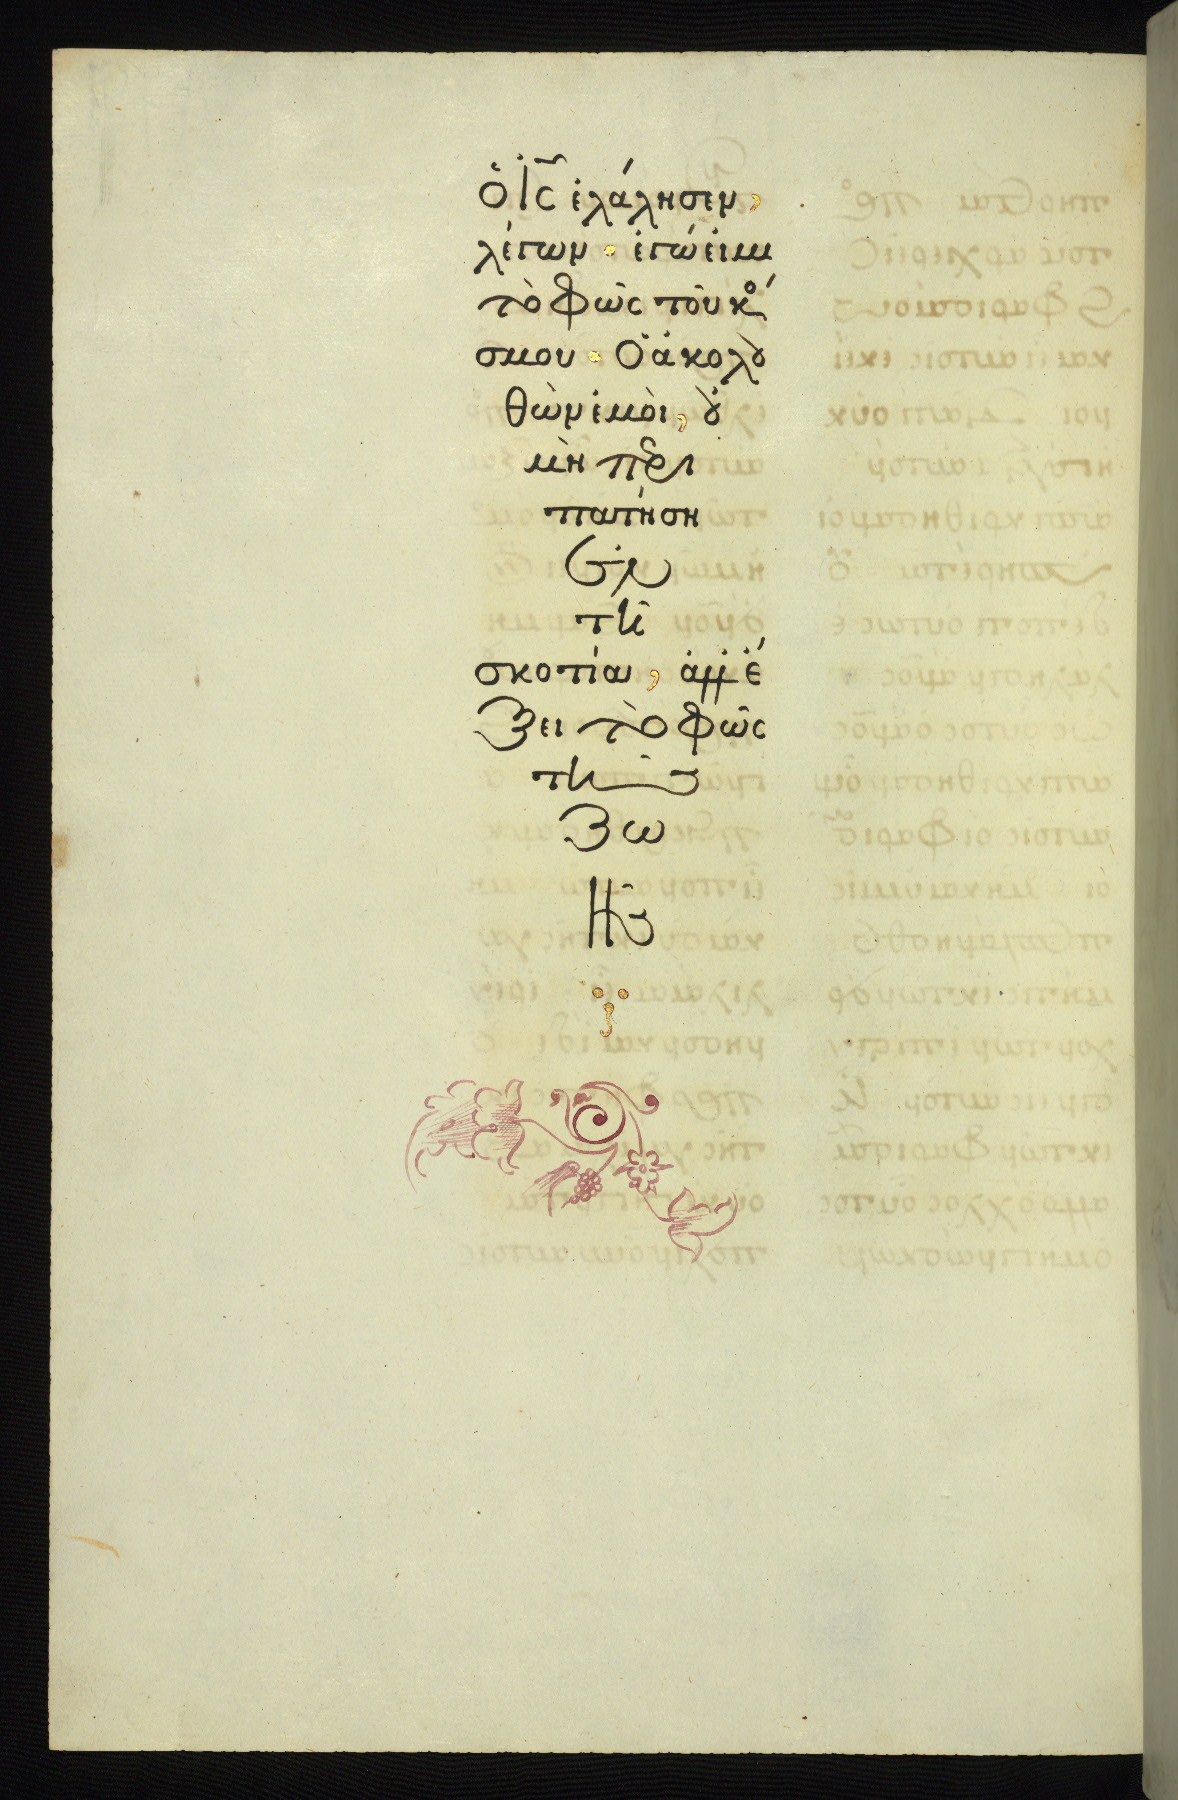 ὁ ἰς ἐλάλησεν,
λέγων · ἐγώ εἰμι
τὸ φῶς τοῦ κό
σμου · Ὁ ἀκολȣ
θῶν ἐμοὶ, ȣ̓
μὴ περι
πατήση
ἐν
τῆ
σκοτία, ἀλλ ἕ
ξει τὸ φῶς
τῆς
ζω
ῆς